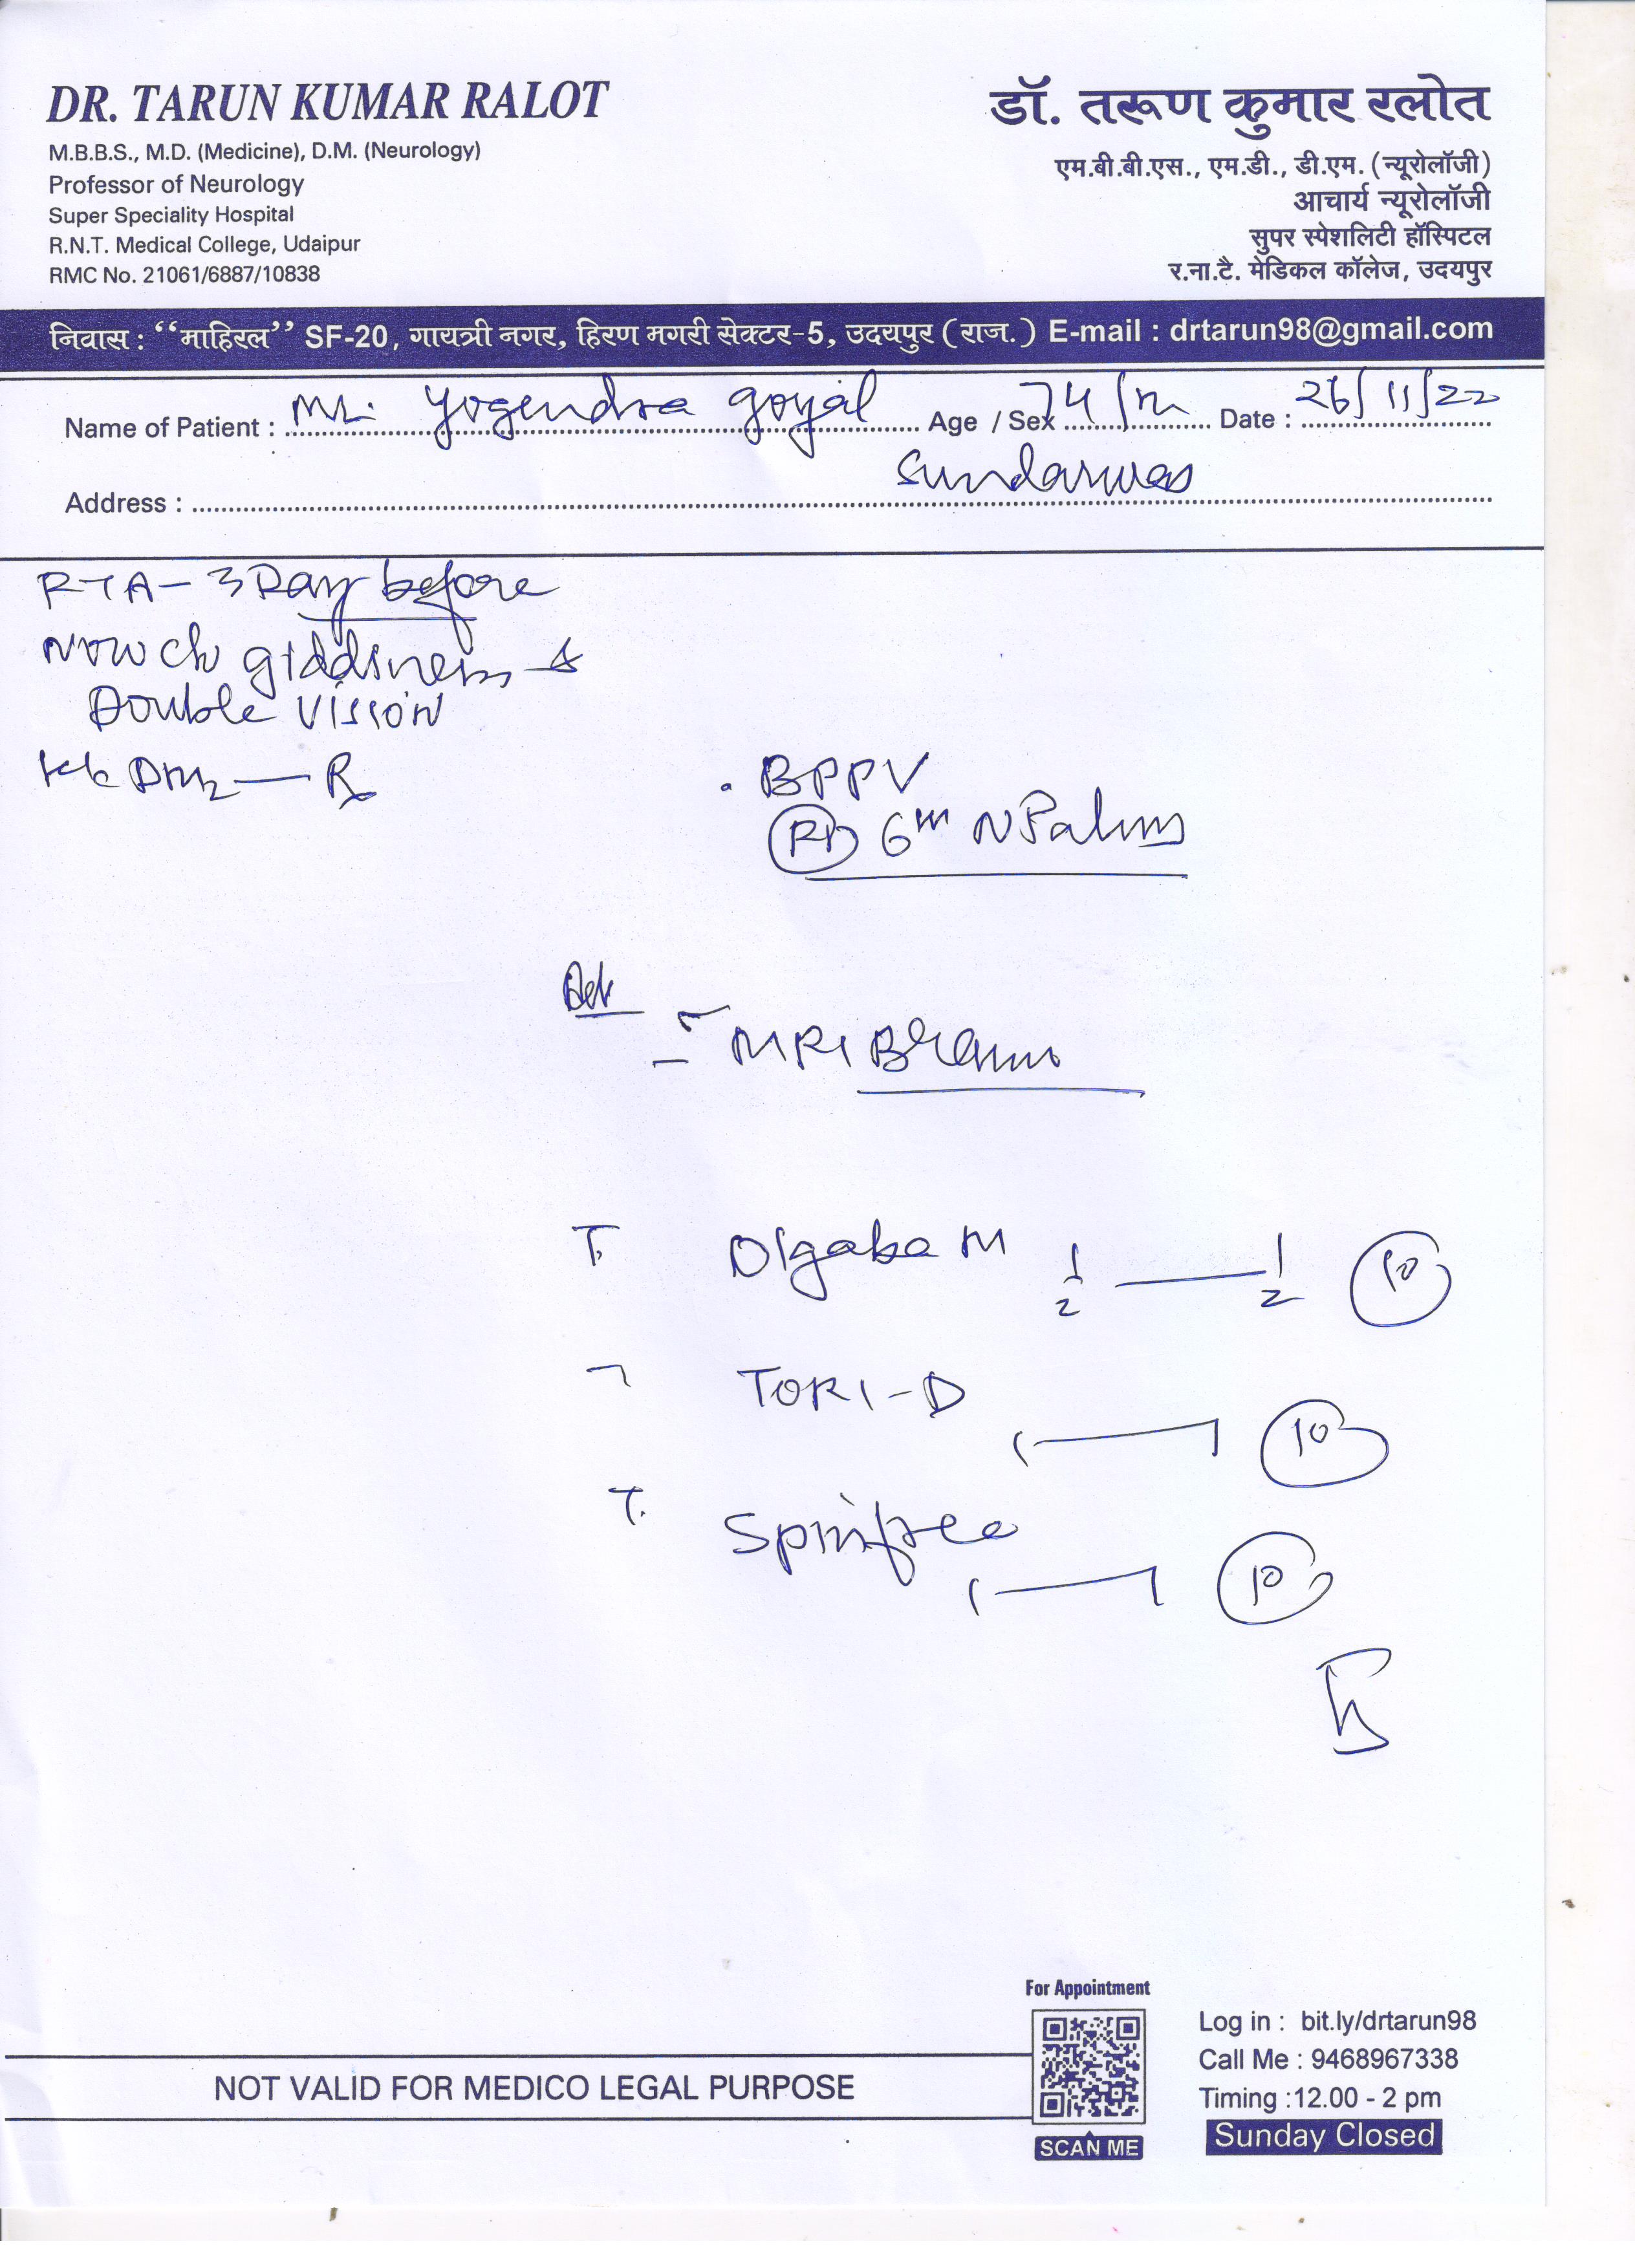 DR. TARUN KUMAR RALOT
M.B.B.S., M.D. (Medicine), D.M. (Neurology)
Professor of Neurology
Super Speciality Hospital
R.N.T. Medical College, Udaipur
RMC No. 21061/6887/10838
डॉ. तरूण कुमार रलोत
एम.बी.बी.एस., एम.डी., डी.एम. (न्यूरोलॉजी)
आचार्य न्यूरोलॉजी
सुपर स्पेशलिटी हॉस्पिटल
र.ना.टै. मेडिकल कॉलेज, उदयपुर
निवास : “माहिरल” SF-20, गायत्री नगर, हिरण मगरी सेक्टर-5, उदयपुर (राज.) E-mail : drtarun98@gmail.com
Name of Patient : Mr. Yogendra goyal Age / Sex 74/m Date : 26/11/22
Address : Sundarwas
RTA - 3 Day before
Now c/o giddiness &
Double Vision
K/c DM2 — Rx
. BPPV
(Rt) 6th N Palsy
Adv
- MRI Brain
T. Olgaba M 1/2 — 1/2 (10)
TORI-D 1 — 1 (10)
T. Spinfree 1 — 1 (10)
For Appointment
SCAN ME
Log in : bit.ly/drtarun98
Call Me : 9468967338
Timing :12.00 - 2 pm
Sunday Closed
NOT VALID FOR MEDICO LEGAL PURPOSE